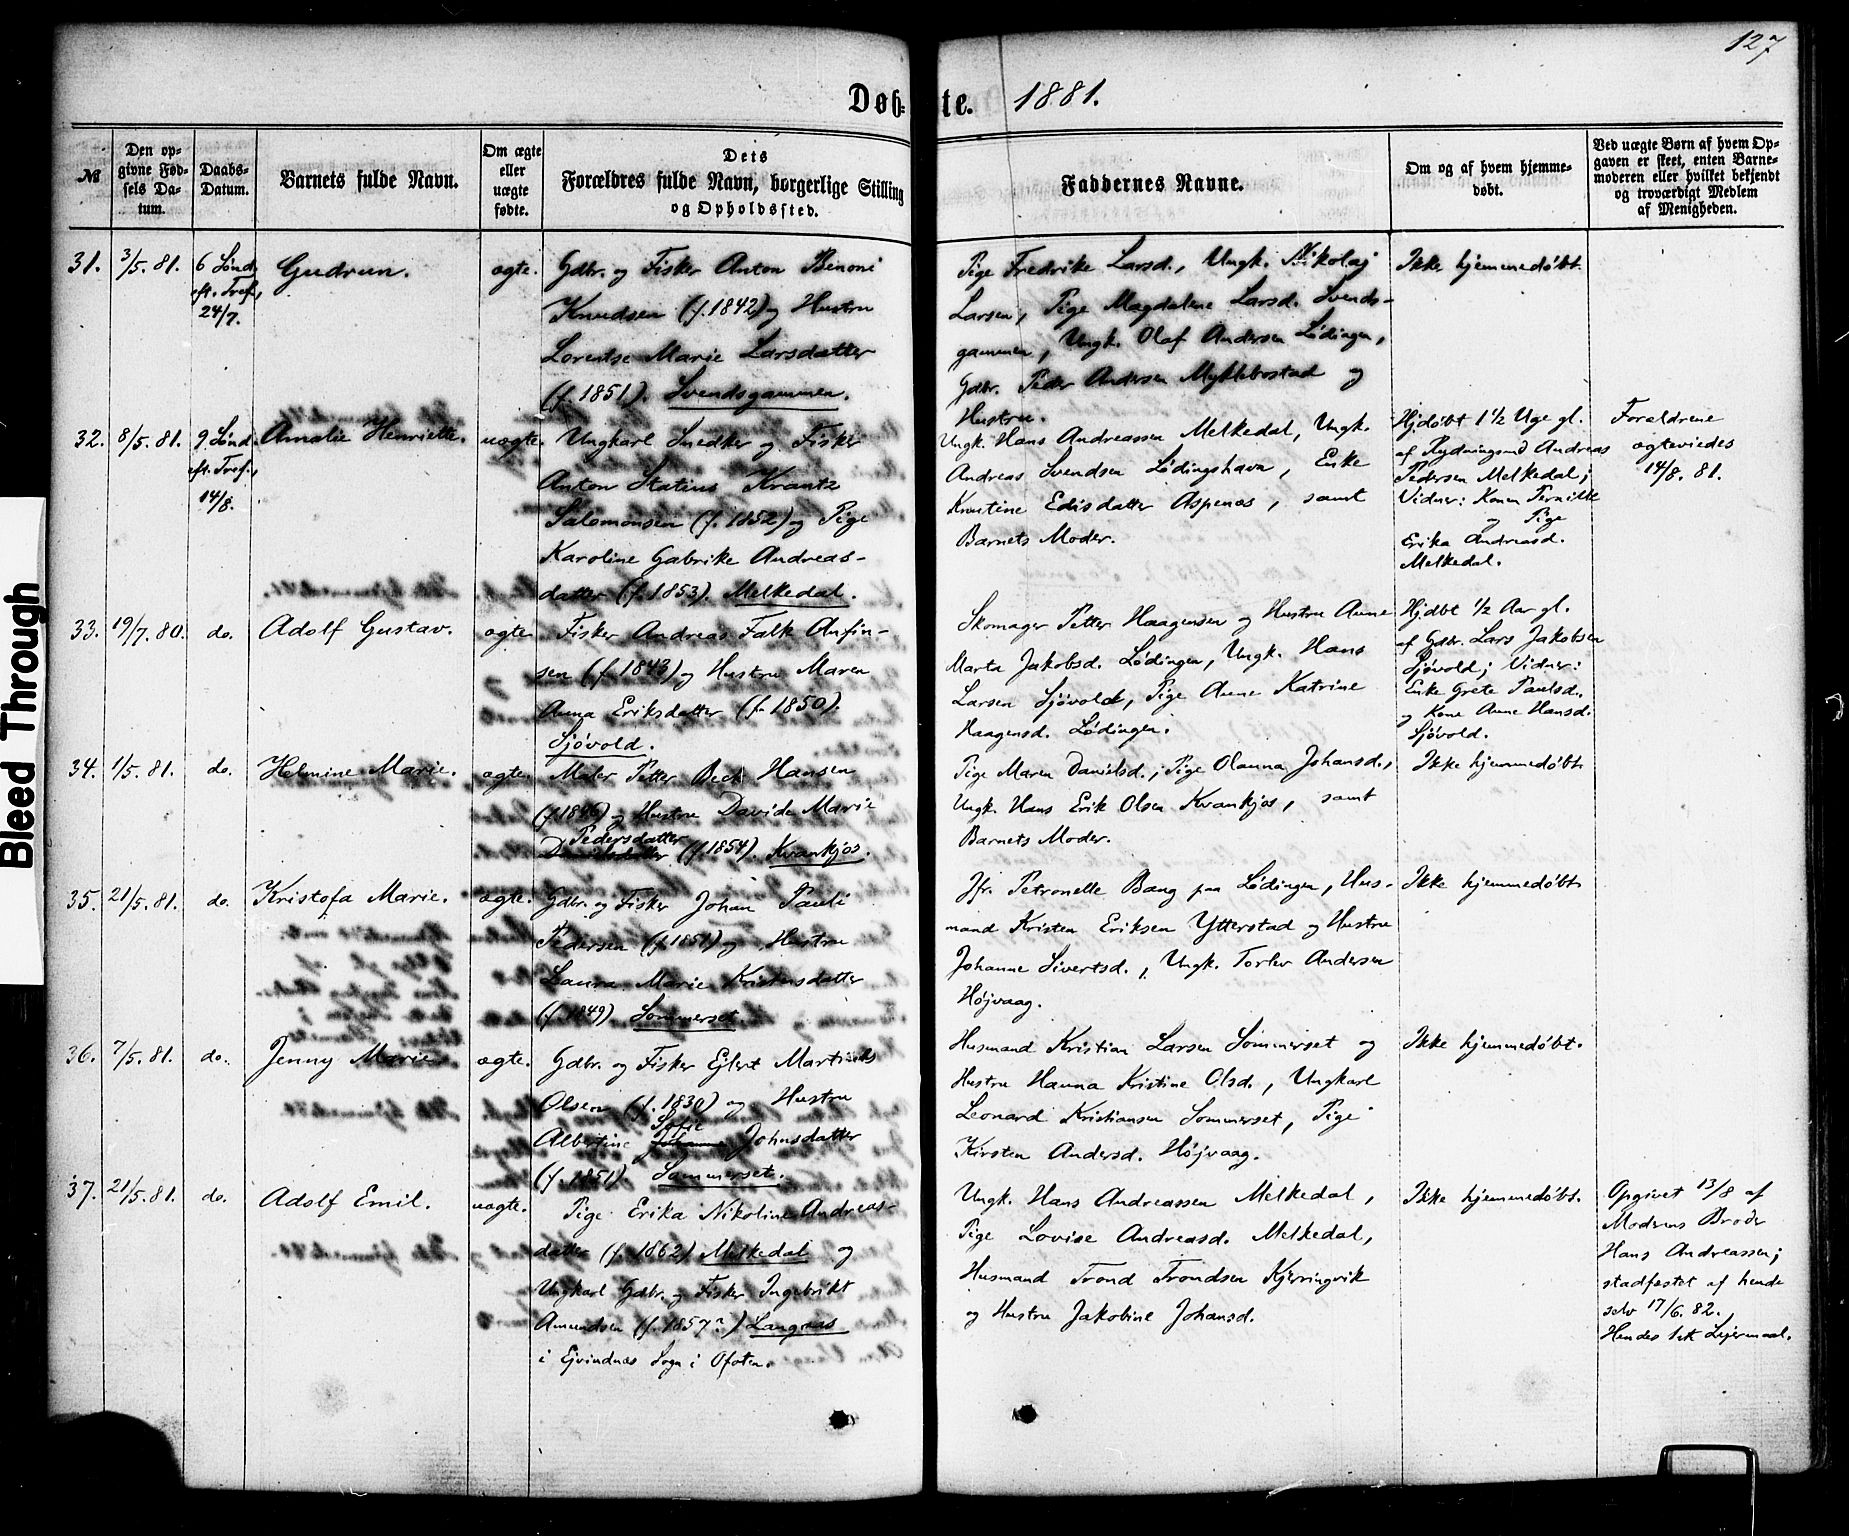 127
Døb-te. 1881.
№
Den op-
givne Fød-
sels Da-
tum.
Daabs-
Datum.
Barnets fulde Navn.
Om ægte
eller
uægte
fødte.
Dets
Forældres fulde Navn, borgerlige Stilling
og Opholdssted.
Faddernes Navne.
Om og af hvem hjemme-
døbt.
Ved uægte Børn af hvem Op-
gaven er skeet, enten Barne-
moderen eller hvilket bekjendt
og troværdigt Medlem
af Menigheden.
31. 3/5. 81.
6 Sønd.
eft. Tref.,
24/7.
Gudrun.
ægte.
Gdbr. og Fisker Anton Benoni
Knudsen (f. 1842) og Hustru
Lorentse Marie Larsdatter
(f. 1851). Svendsgammen.
Pige Fredrike Larsd., Ungk. Nikolaj
Larsen, Pige Magdalene Larsd. Svends-
gammen, Ungk. Olaf Andersen Lødingen,
Gdbr. Peder Andersen Myklebostad og
Hustru.
Ikke hjemmedøbt
32. 8/5. 81.
9. Sønd.
eft. Tref.,
14/8.
Amalie Henriette.
uægte.
Ungkarl Snedker og Fisker
Anton Statius Krantz
Salomonsen (f. 1852) og Pige
Karoline Gabrike Andreas-
datter (f. 1853). Melkedal.
Ungk. Hans Andreassen Melkedal, Ungk.
Andreas Svendsen Lødingshavn, Enke
Kristine Edisdatter Aspenæs, samt
Barnets Moder.
Hjdøbt 1½ Uge gl.
af Rydningsmd Andreas
Pedersen Melkedal;
Vidner: Konen Pernille
og Pige
Erika Andreasd.
Melkedal.
Forældrene
ægteviedes
14/8. 81.
33. 19/7. 80. do. Adolf Gustav. ægte.
Fisker Andreas Falk Anfin-
sen (f. 1843) og Hustru Maren
Anna Eriksdatter (f. 1850).
Sjøvold.
Skomager Petter Haagensen og Hustru Anne
Marta Jakobsd. Lødingen, Ungk. Hans
Larsen Sjøvold, Pige Anne Katrine
Haagensd. Lødingen.
Hjdbt ½ Aar gl.
af Gdbr. Lars Jakobsen
Sjøvold; Vidner:
Enke Grete Paulsd.
og Kone Anne Hansd.
Sjøvold.
34. 1/5. 81. do. Helmine Marie. ægte.
Maler Petter Beck Hansen
(f. 1846) og Hustru Davida Marie
Pedersdatter
Danielsdatter (f. 1854). Kvankjos.
Pige Maren Danielsd.; Pige Olauna Johansd.,
Ungk. Hans Erik Olsen Kvankjos, samt
Barnets Moder.
Ikke hjemmedøbt
35. 21/5. 81. do. Kristofa Marie. ægte.
Gdbr. og Fisker Johan Pauli
Pedersen (f. 1851) og Hustru
Laura Marie Kristensdatter
(f. 1849) Sommerset
Jfr. Petronelle Bang paa Lødingen, Hus-
mand Kristen Eriksen Ytterstad og Hustru
Johanne Sivertsd., Ungk. Torlev Andersen
Højvaag.
Ikke hjemmedøbt
36. 7/5. 81. do. Jenny Marie. ægte.
Gdbr. og Fisker Ejlert Martinus
Olsen (f. 1830) og Hustru
Sofie
Albertine Johanna Johnsdatter
(f. 1851). Sommerset.
Husmand Kristian Larsen Sommerset og
Hustru Hanna Kristine Olsd., Ungkarl
Leonard Kristiansen Sommerset, Pige
Kirsten Andersd. Højvaag.
Ikke hjemmedøbt.
37. 21/5. 81. do. Adolf Emil. uægte.
Pige Erika Nikoline Andreas-
datter (f. 1862) Melkedal og
Ungkarl Gdbr. og Fisker Ingebrikt
Amundsen (f. 1857?) Langnæs
i Ejvindnæs Sogn i Ofoten.
Ungk. Hans Andreassen Melkedal,
Pige Lovise Andreasd. Melkedal,
Husmand Trond Trondsen Kjerringvik
og Hustru Jakobine Johansd.
Ikke hjemmedøbt.
Opgivet 13/8 af
Moderens Broder
Hans Andreassen;
stadfæstet af hende
selv 17/6 82.
Hendes 1ste Lejermaal.
Bleed Through